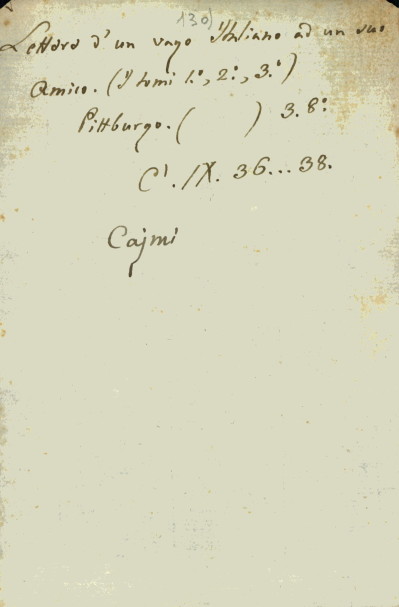 130)
Lettere d'un vago Italiano ad un suo
Amico. (I tomi 1.º, 2.º, 3.º)
Pittburgo. ( ) 3. 8.º
C'. IX. 36...38.
Cajmi